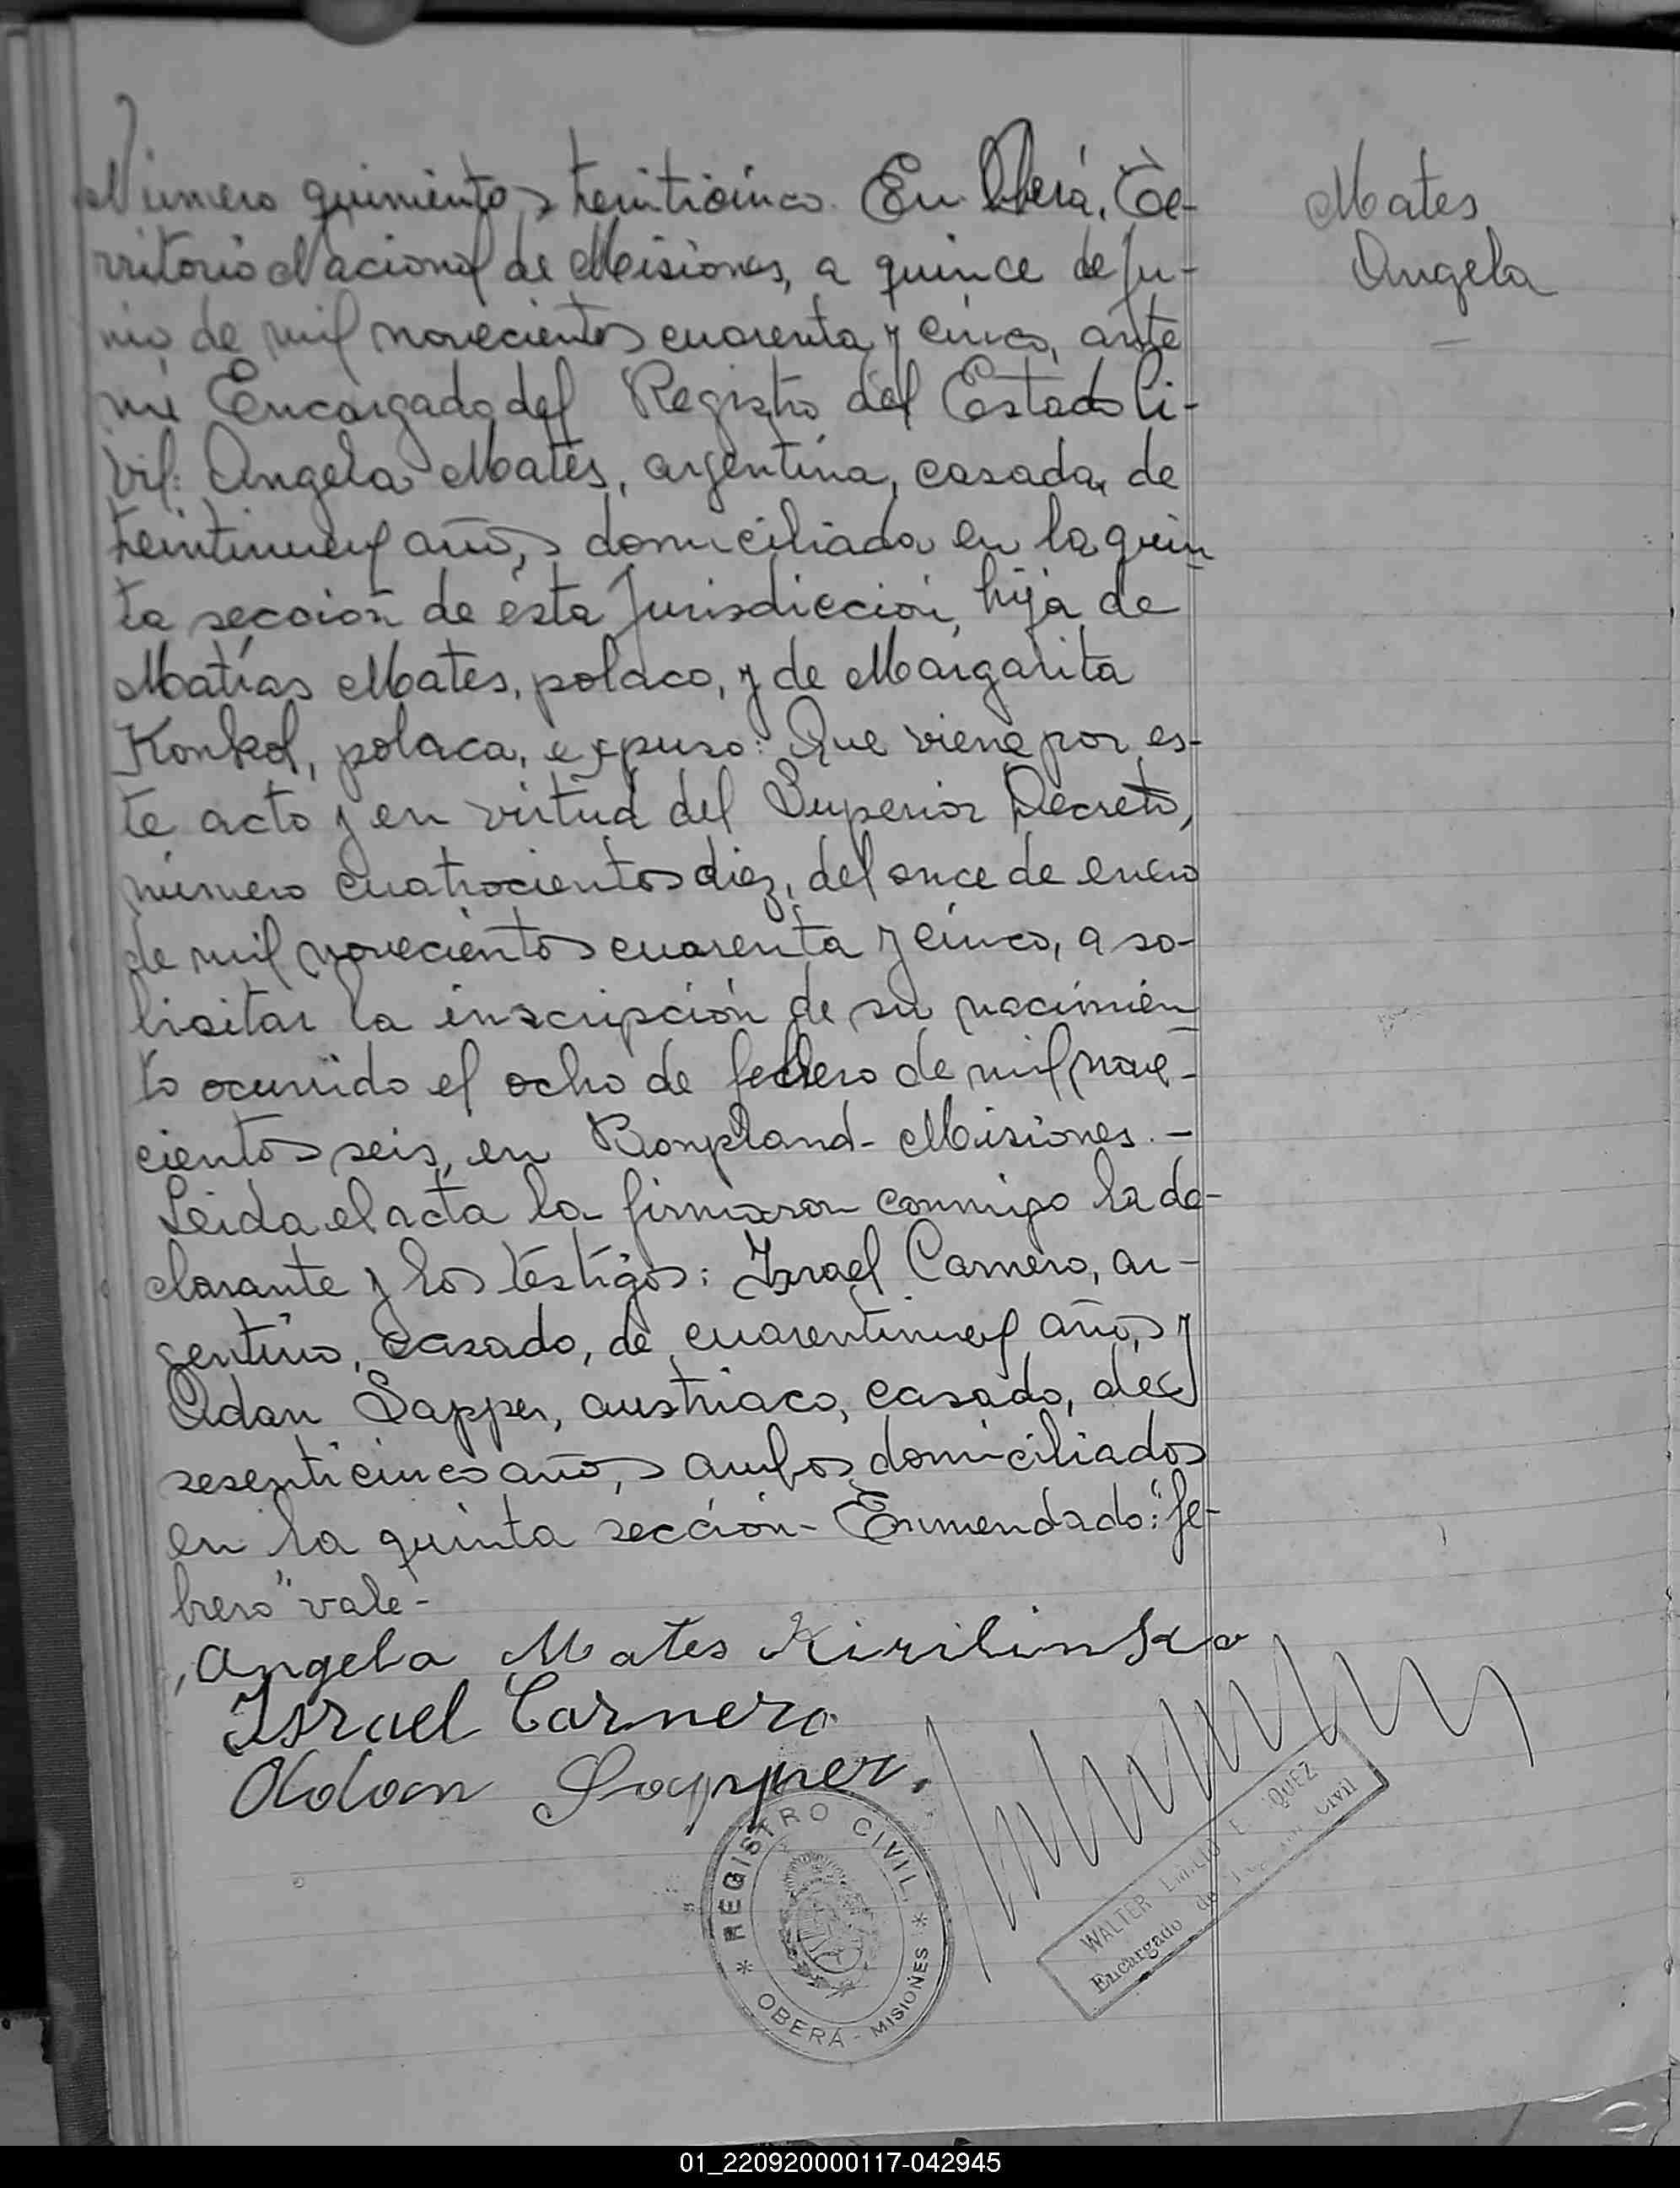 Número quinientos treinticinco. En Oberá, Te-
rritorio Nacional de Misiones, a quince de Ju-
nio de mil novecientos cuarenta y cinco, ante
mi Encargado del Registro del Estado Ci-
vil: Angela Mates, argentina, casada, de
treintinuev años, domiciliada en la quin
ta sección de ésta Jurisdicción, hija de
Matías Mates, polaco, y de Margarita
Konkol, polaca, expuso: Que viene por es-
te acto y en virtud del Superior Decreto,
número cuatrocientos diez, del once de enero
de mil novecientos cuarenta y cinco, a so-
licitar la inscripción de su nacimien
to ocurrido el ocho de febrero de mil nove-
cientos seis, en Bonpland- Misiones.-
Leida el acta la firmaron conmigo la de-
clarante y los testigos: Israel Carnero, ar-
gentino, casado, de cuarentinuev años y
Adan Sapper, austriaco, casado, de
sesenticinco años, ambos domiciliados
en la quinta sección- Enmendado: "fe-
brero" vale-
Angela Mates Kirilinska
Israel Carnero
Adan Sapper.
Mates
Angela
REGISTRO CIVIL
* OBERÁ - MISIONES *
WALTER EMILIO QUEZ
Encargado de Civil
01_220920000117-042945